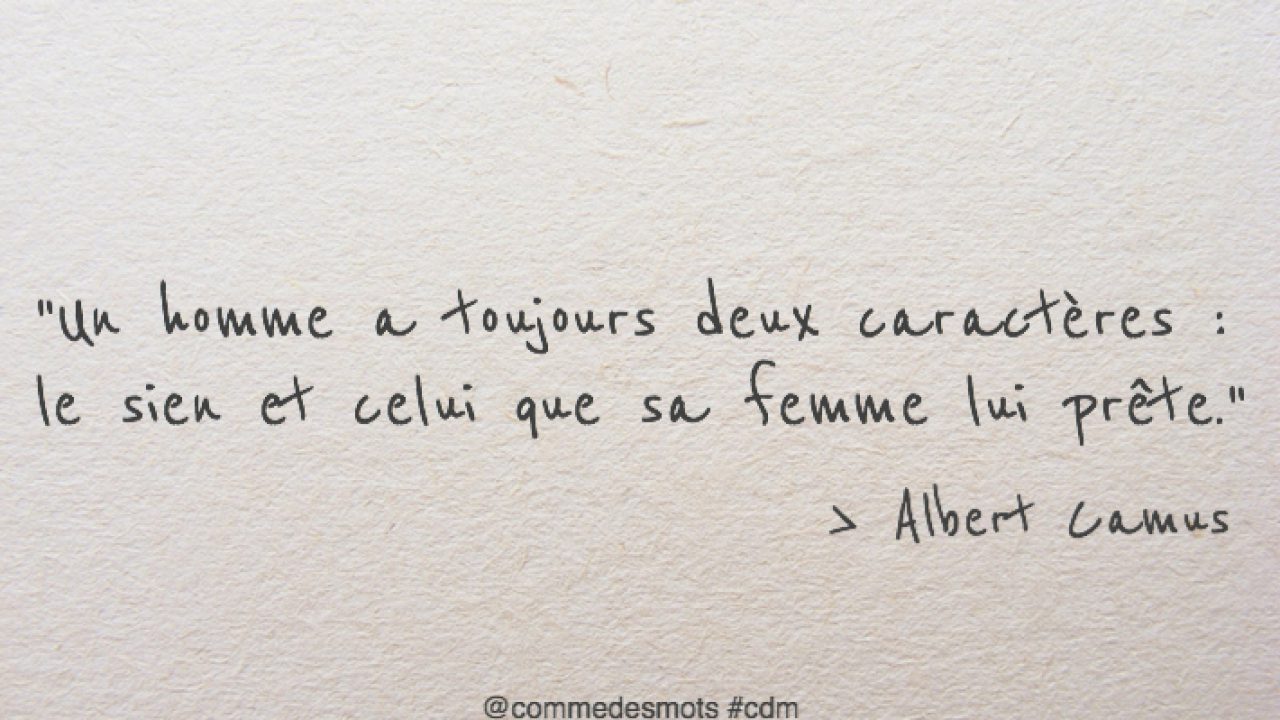 "Un homme a toujours deux caractères :
le sien et celui que sa femme lui prête."
> Albert Camus
@commedesmots #cdm